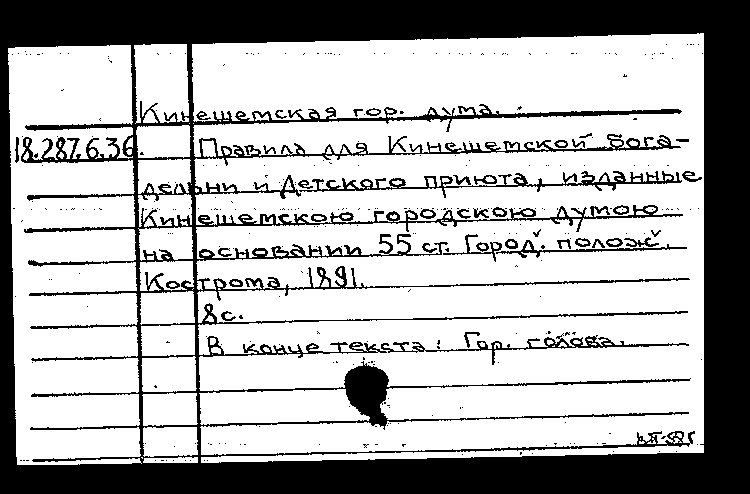 Кинешемская гор. дума.
18.287.6.36. Правила для Кинешемской бога-
дельни и Детского приюта, изданные
Кинешемскою городскою думою
на основании 55 ст. Город. полож.
Кострома, 1891.
8с.
В конце текста: Гор. голова.